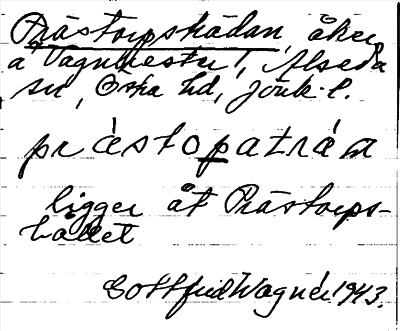 Prästorpshådan, åker
å Vagnhester, Alseda
sn, Östra hd, Jönk. l.
prästopatráa
ligger åt Prästorps-
hållet
Gottfrid Wagnér 1943.